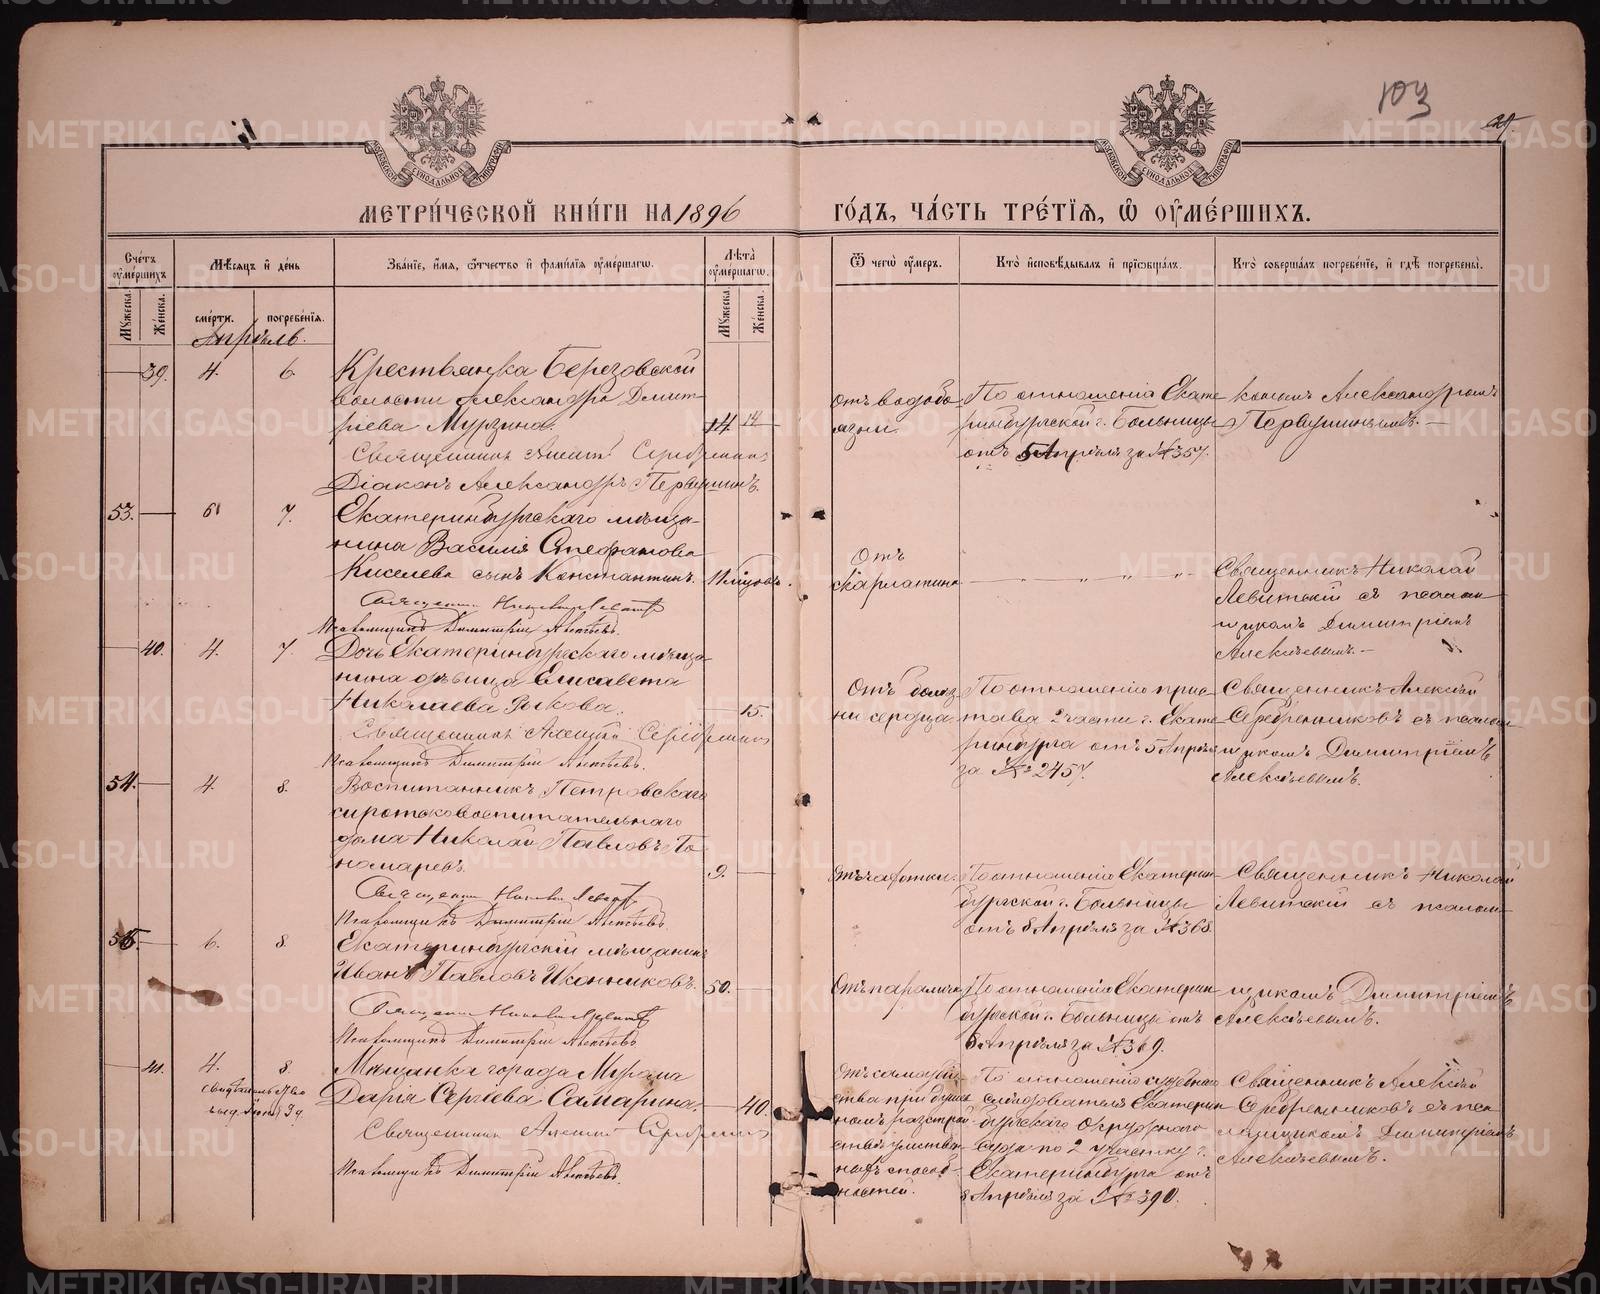 103
МЕТРИ́ЧЕСКОЙ КНИ́ГИ НА 1896 ГО́ДЪ, ЧА́СТЬ ТРЕ́ТІЯ, Ѽ ОУ҆МЕ́РШИХЪ.
Сче́тъ оу҆ме́ршихъ
Мѣ́сяцъ и҆ де́нь
Зва́ніе, и҆́мя, ѻ҆́тчество и҆ фами́лія оу҆ме́ршагѡ.
Лѣ́та оу҆ме́ршагѡ.
Ѿ чегѡ̀ оу҆́меръ.
Кто̀ и҆сповѣ́дывалъ и҆ прїѡбща́лъ.
Кто̀ соверша́лъ погребе́ніе, и҆ гдѣ̀ погребены̀.
Мꙋ́жеска.
Же́нска.
сме́рти.
погребе́нія.
Мꙋ́жеска.
Же́нска.
Апрѣль.
39. 4. 6. Крестьянка Березовской
волости Александра Дмит-
ріева Мурзина. 14
Священникъ Алексѣй Серебренник
Діаконъ Александръ Первушинъ.
Отъ водобо-
язни
По отношенію Екате
ринбургской г. Больницы
отъ 5 Апрѣля за №357.
кономъ Александромъ
Первушинымъ.
53. 6 7. Екатеринбургскаго мѣща-
нина Василія Стефанова
Киселева сынъ Константинъ. 11 мѣсяцовъ.
Священникъ Николай Левитскій
Псаломщикъ Димитрій Алексѣевъ.
Отъ
скарлатины
Священникъ Николай
Левитскій съ псалом
щикомъ Димитріемъ
Алексѣевымъ.
40. 4. 7. Дочь Екатеринбургскаго мѣща-
нина дѣвица Елисавета
Николаева Рыкова. 15.
Священникъ Алексѣй Серебренник
Псаломщикъ Димитрій Алексѣевъ.
Отъ болѣз
ни сердца
По отношенію прис
тава 2 части г. Екате
ринбурга отъ 5 Апрѣля
за №2457.
Священникъ Алексѣй
Серебренниковъ съ псалом
щикомъ Димитріемъ
Алексѣевымъ.
54. 4. 8. Воспитанникъ Петровскаго
сиротовоспитательнаго
дома Николай Павловъ По
номаревъ. 9.
Священникъ Николай Левитскій
Псаломщикъ Димитрій Алексѣевъ.
Отъ чахотки.
По отношенію Екатерин
бургской г. Больницы
отъ 8 Апрѣля за №368.
Священникъ Николай
Левитскій съ псалом-
55. 6. 8. Екатеринбургскій мѣщанинъ
Иванъ Павловъ Иконниковъ. 50.
Священникъ Николай Левитскій
Псаломщикъ Димитрій Алексѣевъ
Отъ паралича
По отношенію Екатерин
бургской г. Больницы отъ
8 Апрѣля за №369.
щикомъ Димитріемъ
Алексѣевымъ.
41. 4. 8. Мѣщанка города Мурома
Дарія Сергіева Самарина. 40.
Священникъ Алексѣй Серебренник
Псаломщикъ Димитрій Алексѣевъ.
Отъ самоубій
ства при душев
номъ разстрой
ствѣ умствен
ныхъ способ-
ностей.
По отношенію судебнаго
слѣдователя Екатерин
бургскаго Окружнаго
Суда по 2 участку г.
Екатеринбурга отъ
8 Апрѣля за №390.
Священникъ Алексѣй
Серебренниковъ съ пса
ломщикомъ Димитріемъ
Алексѣевымъ.